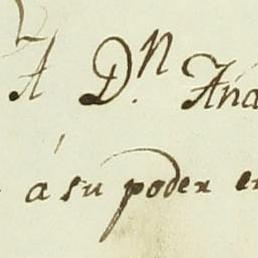 A D.ⁿ Ana
á su poder en